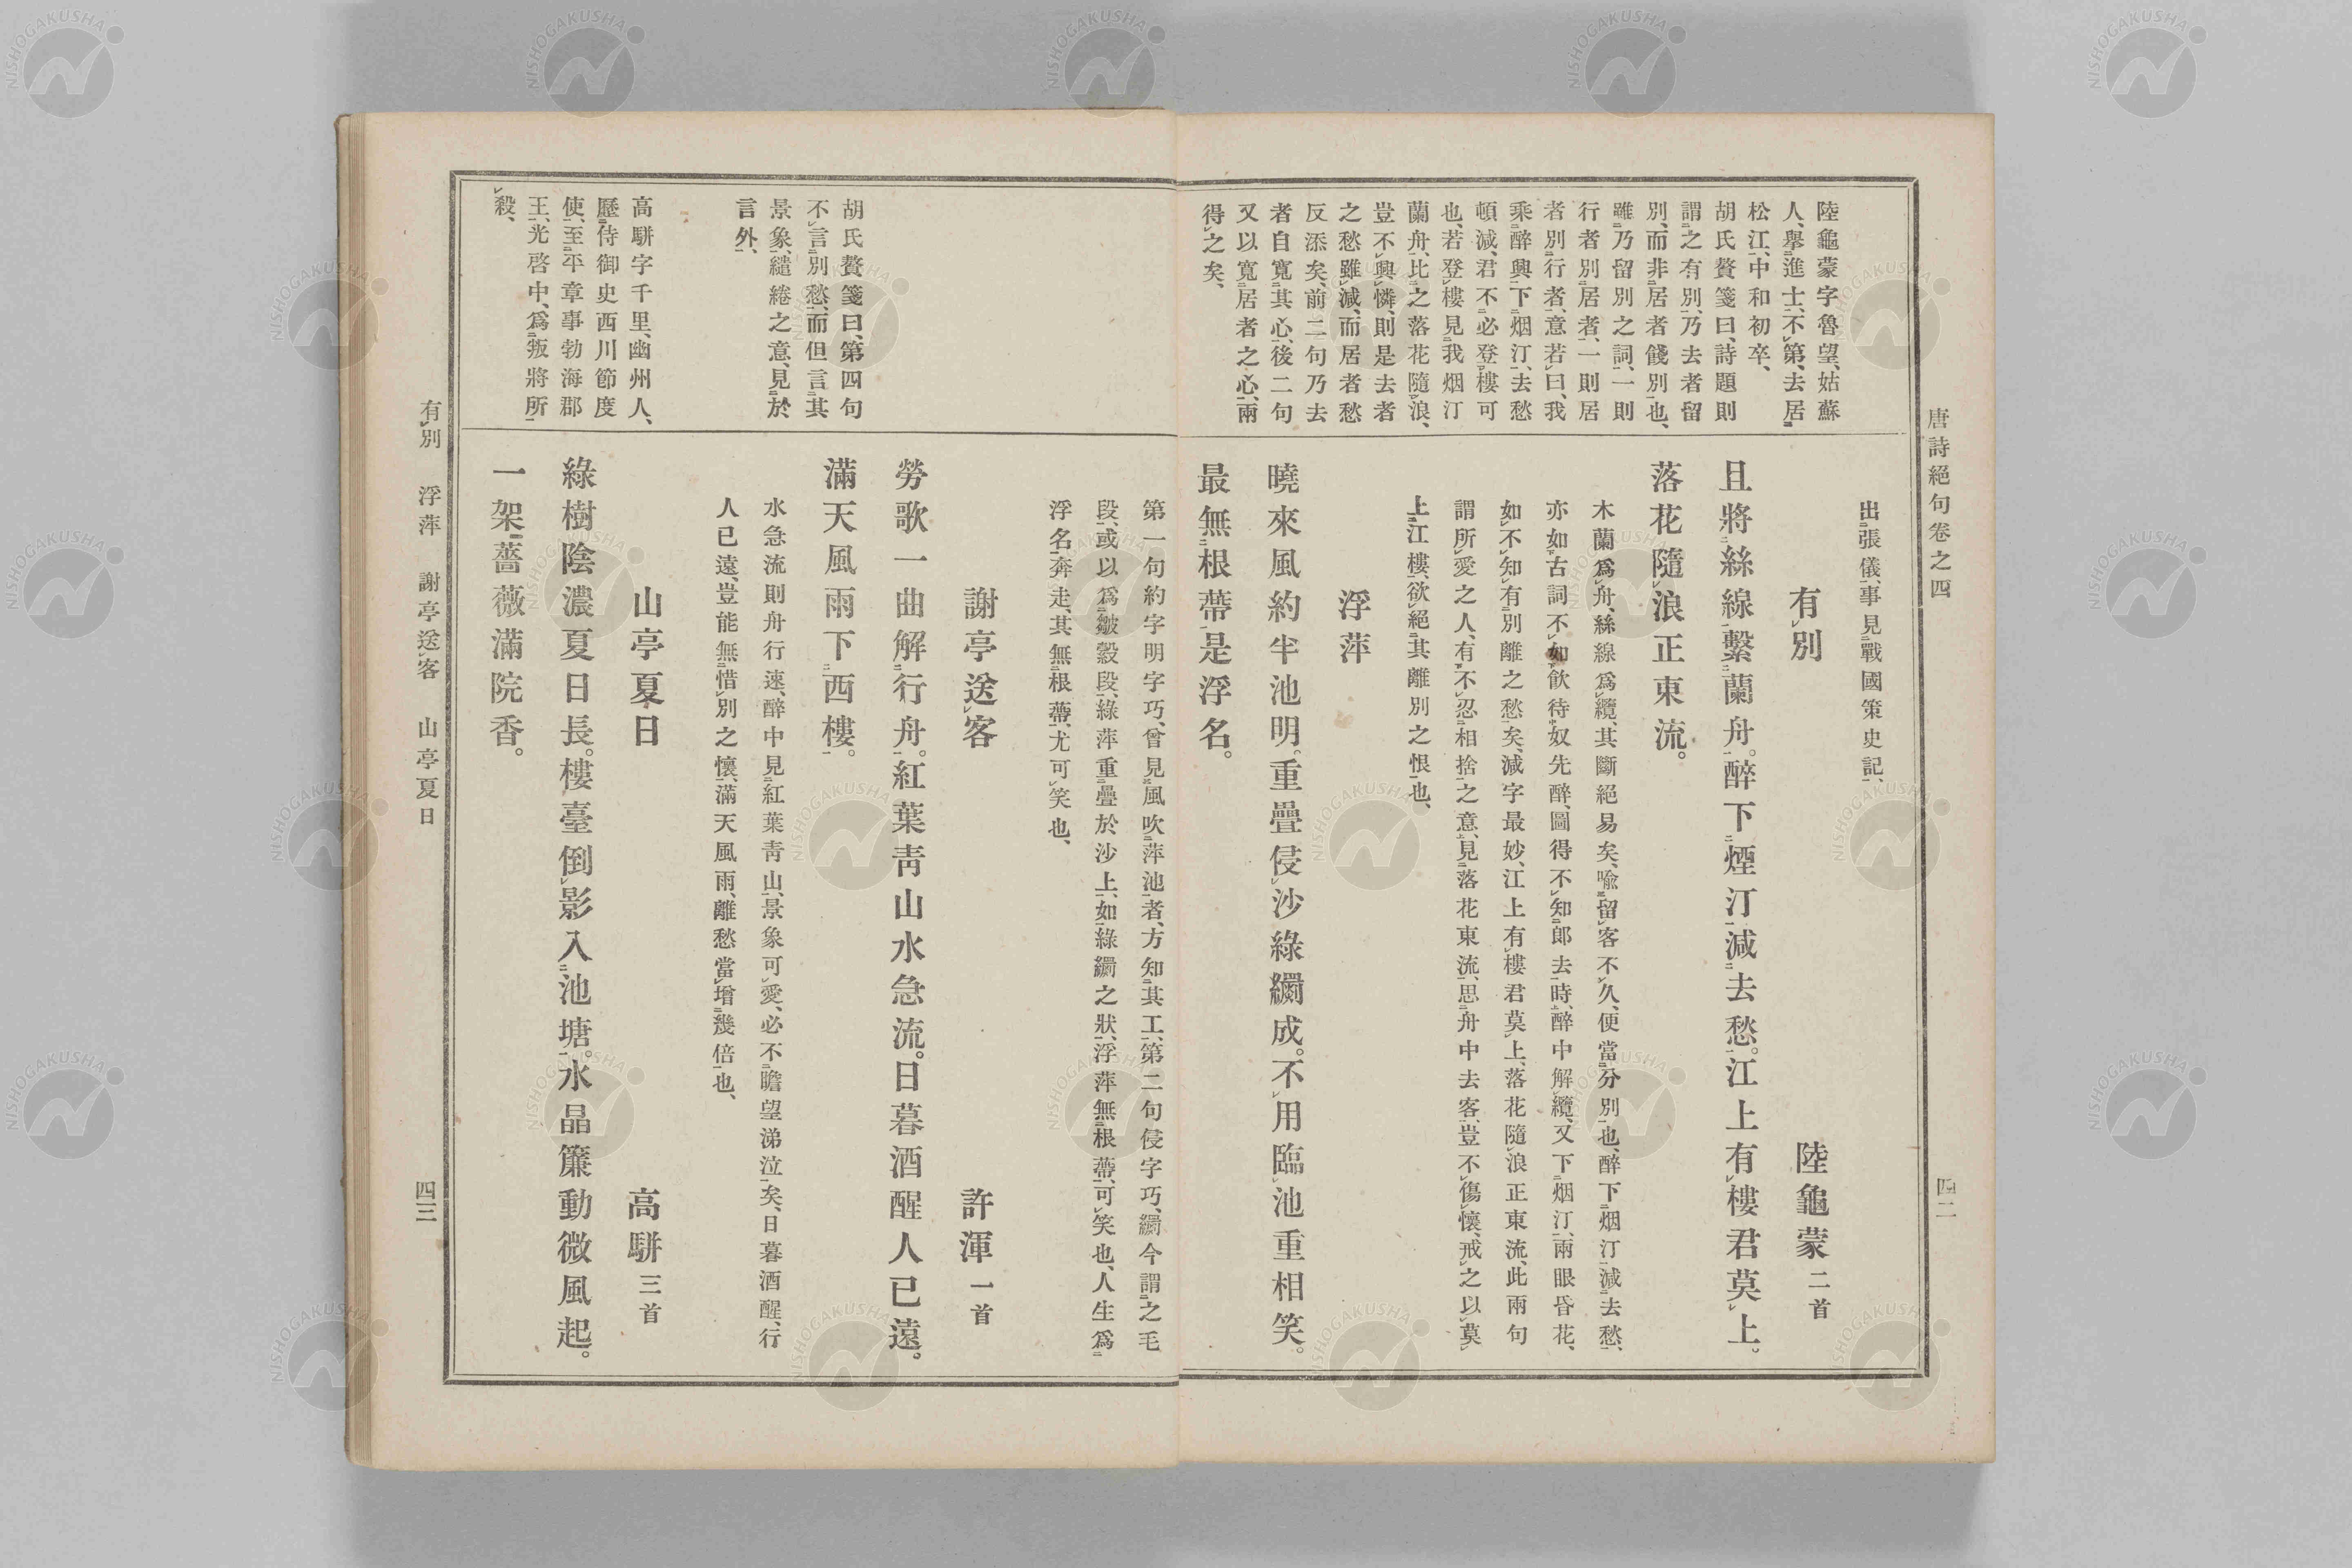 唐詩絕句卷之四
四二
陸龜蒙字魯望、姑蘇
人、舉進士、不第、去居
松江、中和初卒、
胡氏贅箋曰、詩題則
謂之有別、乃去者留
別、而非居者餞別也、
雖乃留別之詞、一則
行者別居者、一則居
者別行者、意若曰、我
乘醉興下烟汀、去愁
頓減、君不必登樓可
也、若登樓見我烟汀
蘭舟、比之落花隨浪、
豈不興憐、則是去者
之愁雖減、而居者愁
反添矣、前二句乃去
者自寬其心、後二句
又以寬居者之心、兩
得之矣、
出張儀、事見戰國策史記、
有別 陸龜蒙二首
且將絲線繫蘭舟。醉下煙汀減去愁。江上有樓君莫上。
落花隨浪正東流。
木蘭爲舟、絲線爲纜、其斷絕易矣、喩留客不久、便當分別也、醉下烟汀減去愁、
亦如古詞不如飮待奴先醉、圖得不知郎去時、醉中解纜、又下烟汀、兩眼昏花、
如不知有別離之愁矣、減字最妙、江上有樓君莫上、落花隨浪正東流、此兩句
謂所愛之人、有不忍相捨之意、見落花東流、思舟中去客、豈不傷懷、戒之以莫
上江樓、欲絕其離別之恨也、
浮萍
曉來風約半池明。重疊侵沙綠罽成。不用臨池重相笑。
最無根蔕是浮名。
第一句約字明字巧、曾見風吹萍池者、方知其工、第二句侵字巧、罽今謂之毛
段、或以爲皺縠段、綠萍重疊於沙上、如綠罽之狀、浮萍無根蔕、可笑也、人生爲
浮名奔走、其無根蔕、尤可笑也、
胡氏贅箋曰、第四句
不言別愁、而但言其
景象、繾綣之意、見於
言外、
高駢字千里、幽州人、
歷侍御史西川節度
使、至平章事勃海郡
王、光啓中、爲叛將所
殺、
謝亭送客 許渾一首
勞歌一曲解行舟。紅葉靑山水急流。日暮酒醒人已遠。
滿天風雨下西樓。
水急流則舟行速、醉中見紅葉靑山、景象可愛、必不瞻望涕泣矣、日暮酒醒、行
人已遠、豈能無惜別之懷、滿天風雨、離愁當增幾倍也、
山亭夏日 高駢三首
綠樹陰濃夏日長。樓臺倒影入池塘。水晶簾動微風起。
一架薔薇滿院香。
有別 浮萍 謝亭送客 山亭夏日
四三
NISHOGAKUSHA